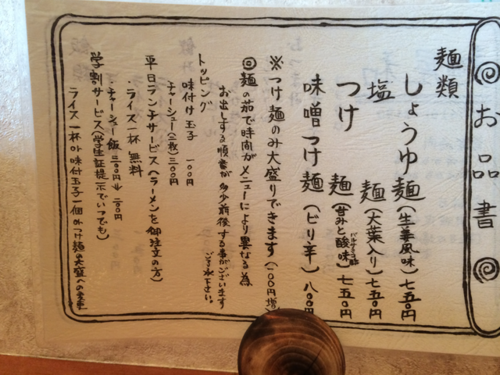 お品書
麺類
しょうゆ麺(生姜風味)七五〇円
塩麺(大葉入り)七五〇円
つけ麺(甘みと酸味)七五〇円
味噌つけ麺(ピリ辛)八〇〇円
※つけ麺のみ大盛りできます(一〇〇円増)
◎麺の茹で時間がメニューにより異なる為
お出しする順番が多少前後する事がございます
ご了承下さい。
トッピング
味付け玉子 一〇〇円
チャーシュー(三枚)三〇〇円
平日ランチサービス(ラーメンを御注文の方)
・ライス一杯 無料
・チャーシュー飯 三〇〇円→二〇〇円
学割サービス(学生証提示でいつでも)
ライス一杯or味付玉子一個orつけ麺の大盛への変更